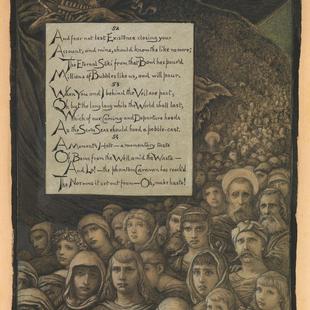 52
And fear not lest Existence closing your
Account, and mine, should know the like no more;
The Eternal Sáki from that Bowl has pour'd
Millions of Bubbles like us, and will pour.
When You and I behind the Veil are past,
Oh but the long long while the World shall last,
Which of our Coming and Departure heeds
As the Seven Seas should heed a pebble-cast.
54
A Moment's Halt—a momentary taste
Of Being from the Well amid the Waste—
And Lo!—the phantom Caravan has reach'd
The Nothing it set out from—Oh, make haste!